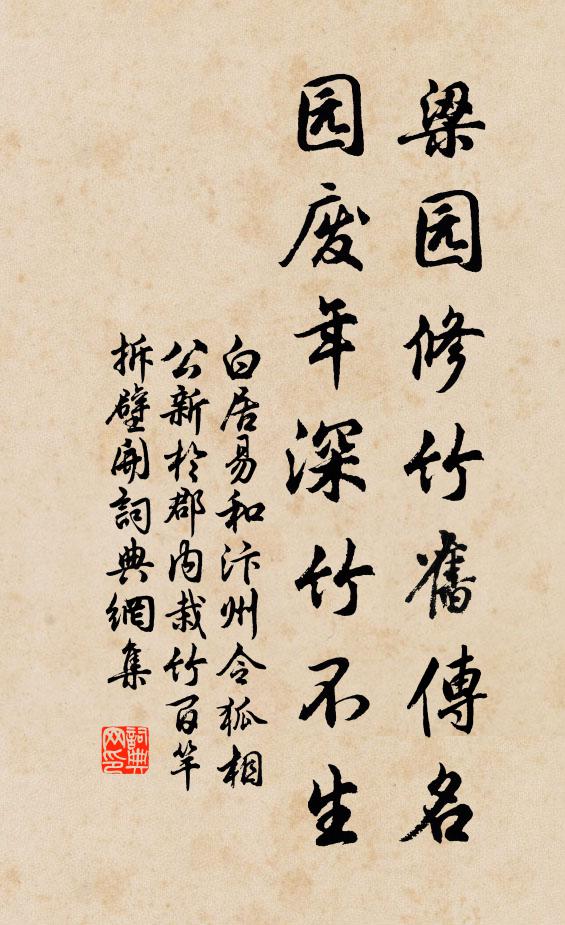 梁园修竹舊傳名
园废年深竹不生
白居易和汴州令狐相
公新於郡内栽竹百竿
拆壁開詞典網集
詞典
网印